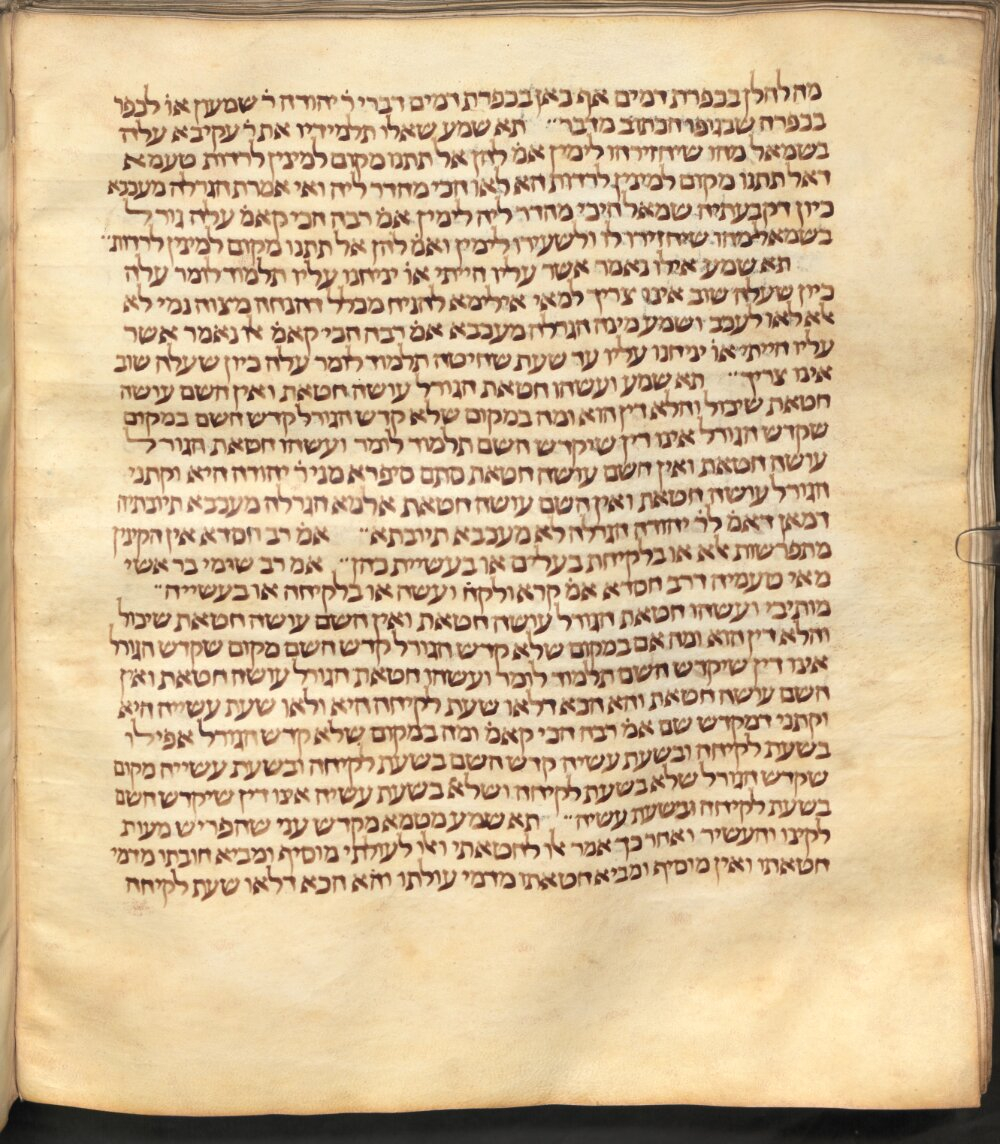 מה להלן בכפרת דמים אף כאן בכפרת דמים דברי ר׳ יהודה ר׳ שמעון אומ׳ לכפר
בכפרה שבגופו הכתוב מדבר׳׳ תא שמע שאלו תלמידיו את ר׳ עקיבא עלה
בשמאל מהו שיחזירהו לימין אמ׳ להן אל תתנו מקום למינין לרדות טעמא
דאל תתנו מקום למינין לרדות הא לאו הכי מהדר ליה ואי אמרת הגרלה מעכבא
כיון דקבעתיה שמאל היכי מהדר ליה לימין אמ׳ רבה הכי קאמ׳ עלה גורל
בשמאל מהו שיחזירו לו ולשעירו לימין ואמ׳ להן אל תתנו מקום למינין לרדות׳׳
תא שמע אילו נאמר אשר עליו הייתי או׳ יניחנו עליו תלמוד לומר עלה
כיון שעלה שוב אינו צריך למאי אילימא להניח מכלל דהנחה מצוה נמי לא
אלא לאו לעכב ושמע מינה הגרלה מעכבא אמ׳ רבה הכי קאמ׳ או נאמר אשר
עליו הייתי או׳ יניחנו עליו עד שעת שחיטה תלמוד לומר עלה כיון שעלה שוב
אינו צריך׳׳ תא שמע ועשהו חטאת הגורל עושה חטאת ואין השם עושה
חטאת שיכול והלא דין הוא ומה במקום שלא קדש הגורל קדש השם במקום
שקדש הגורל אינו דין שיקדש השם תלמוד לומר ועשהו חטאת הגורל
עושה חטאת ואין השם עושה חטאת סתם סיפרא מני ר׳ יהודה היא וקתני
הגורל עושה חטאת ואין השם עושה חטאת אלמא הגרלה מעכבא תיובתיה
דמאן דאמ׳ לר׳ יהודה הגרלה לא מעכבא תיובתא׳׳ אמ׳ רב חסדא אין הקינין
מתפרשות אלא או בלקיחת בעלים או בעשיית כהן׳׳ אמ׳ רב שימי בר אשי
מאי טעמיה דרב חסדא אמ׳ קרא ולקח ועשה או בלקיחה או בעשייה׳׳
מותיבי ועשהו חטאת הגורל עושה חטאת ואין השם עושה חטאת שיכול
והלא דין הוא ומה אם במקום שלא קדש הגורל קדש השם מקום שקדש הגורל
אינו דין שיקדש השם תלמוד לומר ועשהו חטאת הגורל עושה חטאת ואין
השם עושה חטאת והא הכא דלאו שעת לקיחה היא ולאו שעת עשייה היא
וקתני דמקדש שם אמ׳ רבה הכי קאמ׳ ומה במקום שלא קדש הגורל אפילו
בשעת לקיחה ובשעת עשיה קדש השם בשעת לקיחה ובשעת עשייה מקום
שקדש הגורל שלא בשעת לקיחה ושלא בשעת עשיה אינו דין שיקדש השם
בשעת לקיחה ובשעת עשיה׳׳ תא שמע מטמא מקדש עני שהפריש מעות
לקינו והעשיר ואחר כך אמר אלו לחטאתי ואלו לעולתי מוסיף ומביא חובתו מדמי
חטאתו ואין מוסיף ומביא חטאתו מדמי עולתו והא הכא דלאו שעת לקיחה